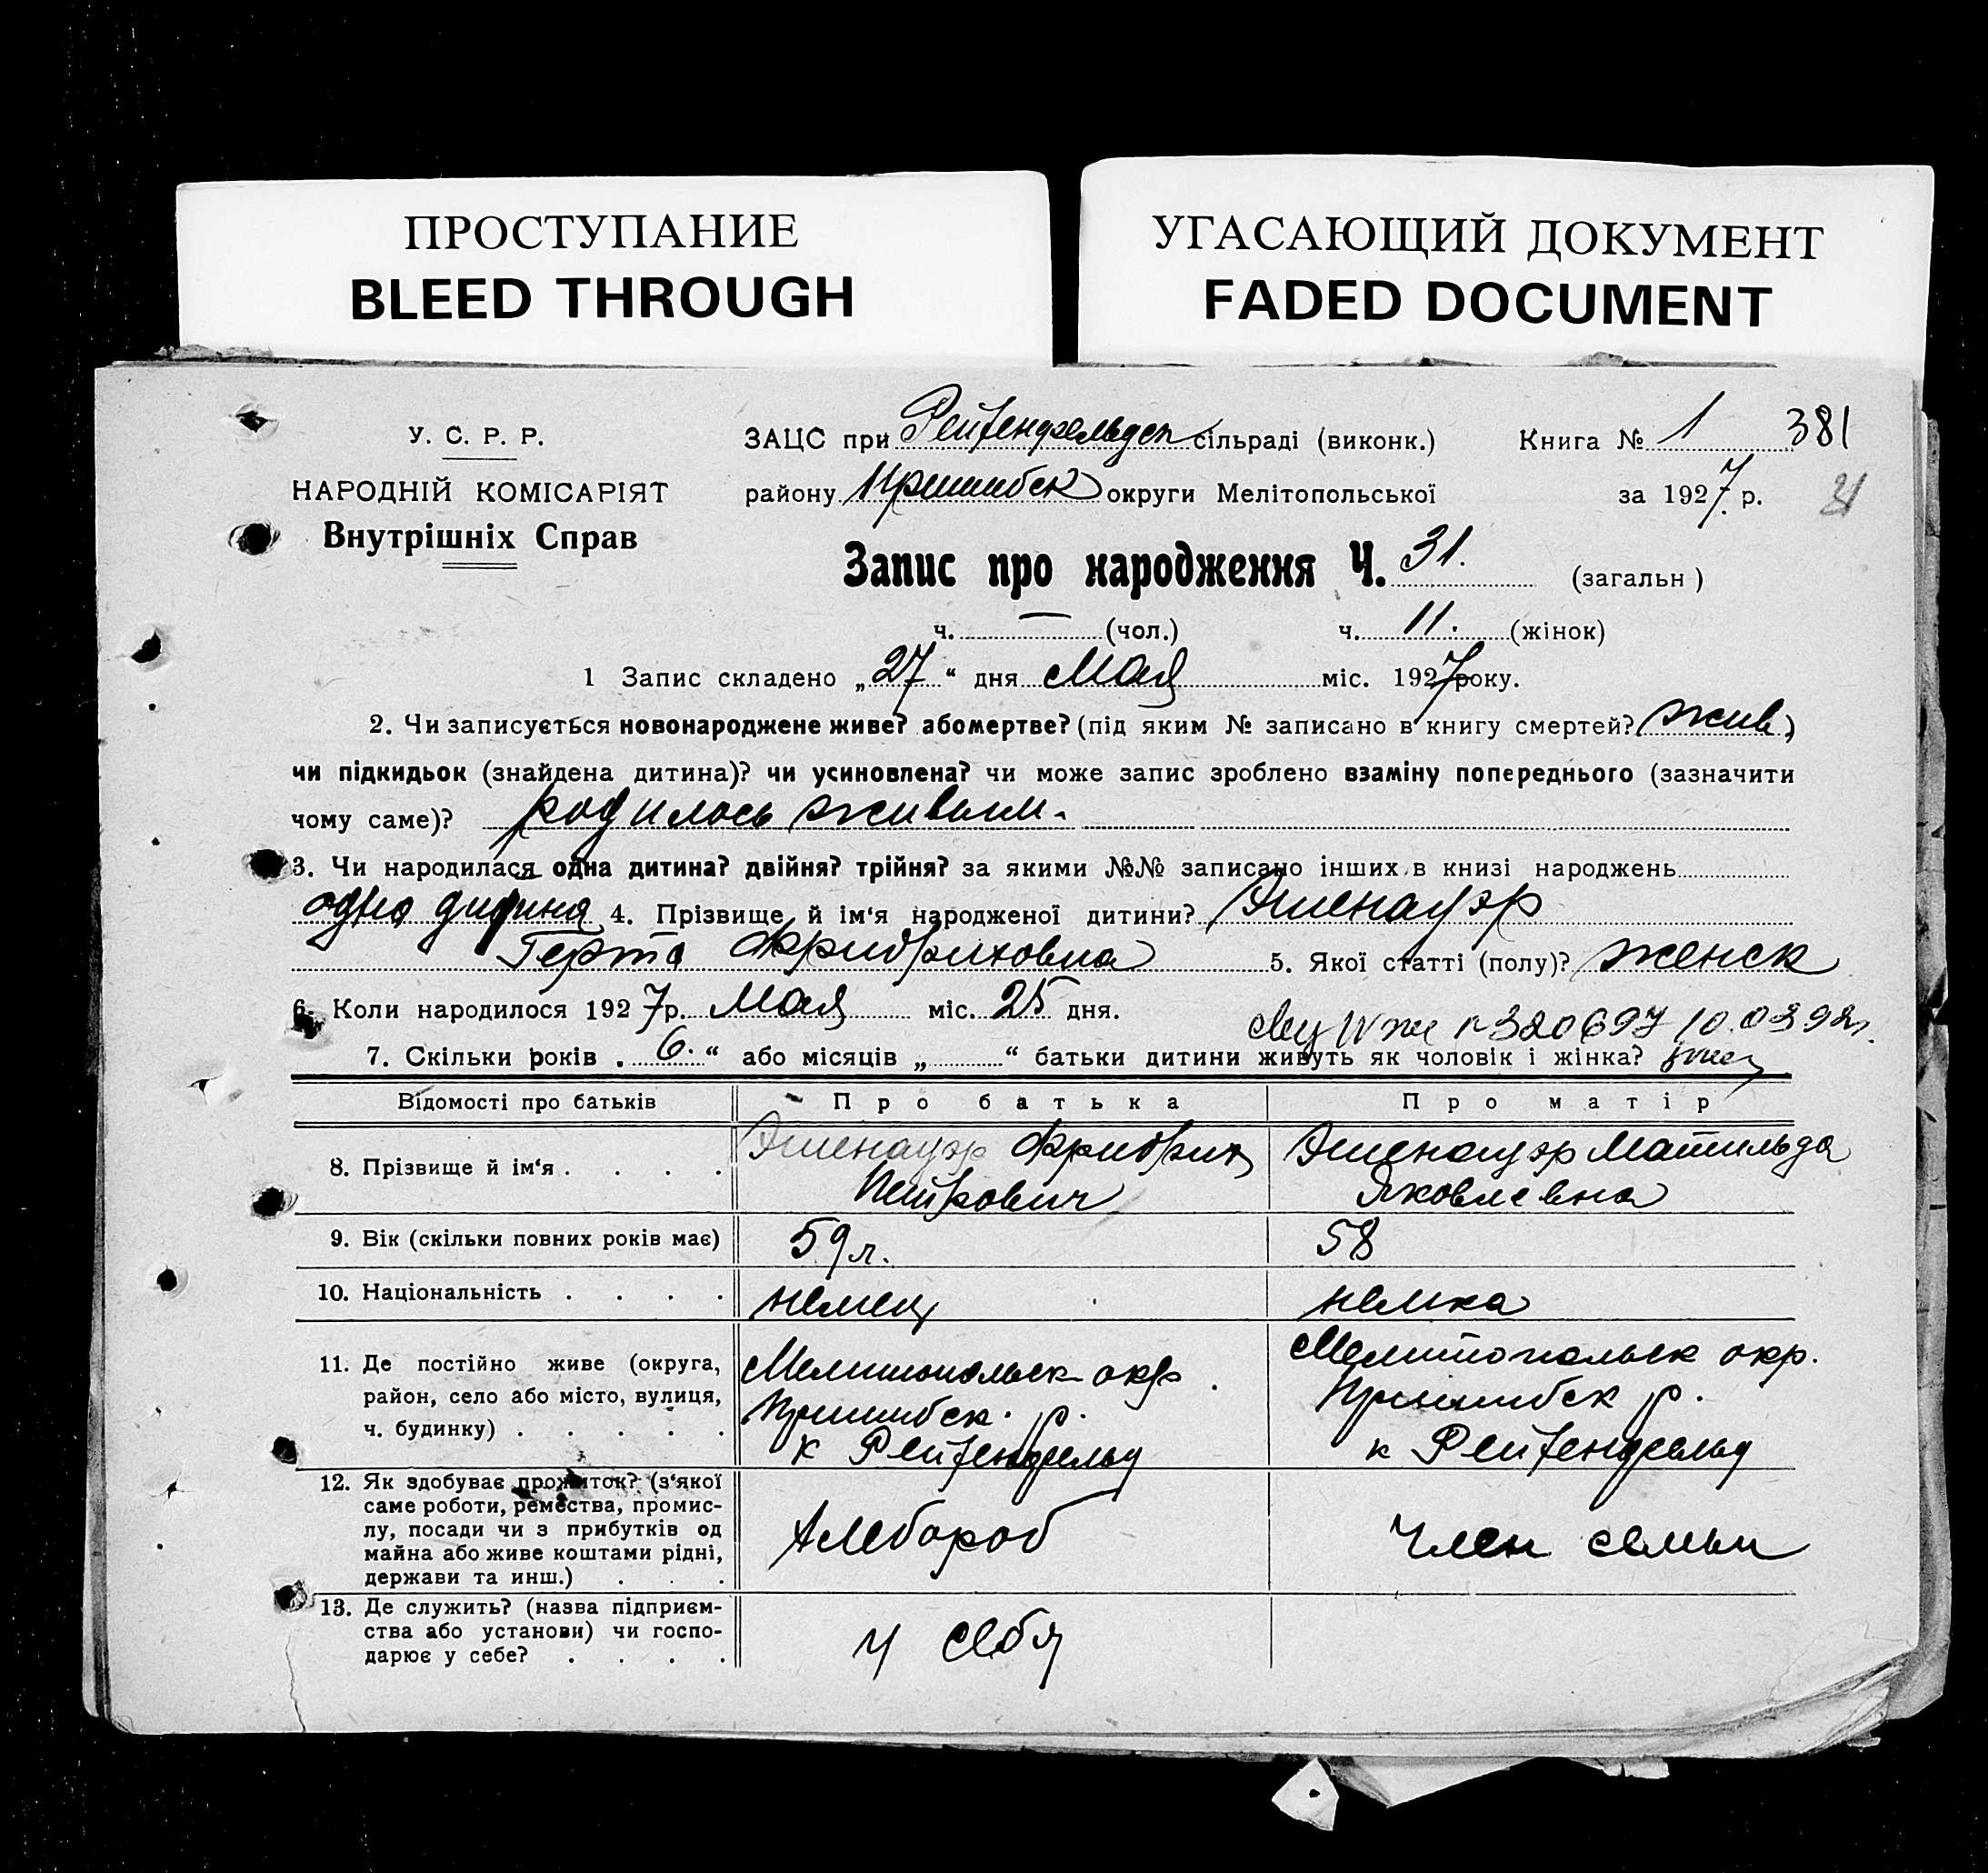 ПРОСТУПАНИЕ
BLEED THROUGH
УГАСАЮЩИЙ ДОКУМЕНТ
FADED DOCUMENT
У. С. Р. Р.
НАРОДНІЙ КОМІСАРІЯТ
Внутрішніх Справ
ЗАЦС при Рейхенфельдск сільраді (виконк.) Книга № 1 381
району Пришибск округи Мелітопольської за 1927 р.
Запис про народження Ч. 31. (загальн)
ч. — (чол.) ч. 11. (жінок)
1 Запис складено „27“ дня Мая міс. 1927 року.
2. Чи записується новонароджене живе? або мертве? (під яким № записано в книгу смертей? жив)
чи підкидьок (знайдена дитина)? чи усиновлена? чи може запис зроблено взаміну попереднього (зазначити
чому саме)? родилось живым.
3. Чи народилася одна дитина? двійня? трійня? за якими №№ записано інших в книзі народжень
одна дитина 4. Прізвище й ім‘я народженої дитини? Эшенауэр
Герта Фридриховна 5. Якої статті (полу)? женск
6. Коли народилося 1927 р. Мая міс. 25 дня.
7. Скільки років „6.“ або місяців „ “ батьки дитини живуть як чоловік і жінка?
Відомості про батьків Про батька Про матір
8. Прізвище й ім‘я . . . . Эшенауэр Фридрих Петрович Эшенауэр Матильда Яковлевна
9. Вік (скільки повних років має) 59 л. 58
10. Національність . . . . немец немка
11. Де постійно живе (округа, район, село або місто, вулиця, ч. будинку) . . . . . Мелитопольск окр. Пришибск. р. к Рейхенфельд Мелитопольск окр. Пришибск р. к Рейхенфельд
12. Як здобуває прожиток? (з‘якої саме роботи, ремества, промислу, посади чи з прибутків од майна або живе коштами рідні, держави та инш.) . . . Хлебороб Член семьи
13. Де служить? (назва підприємства або установи) чи господарює у себе? . . . . у себя